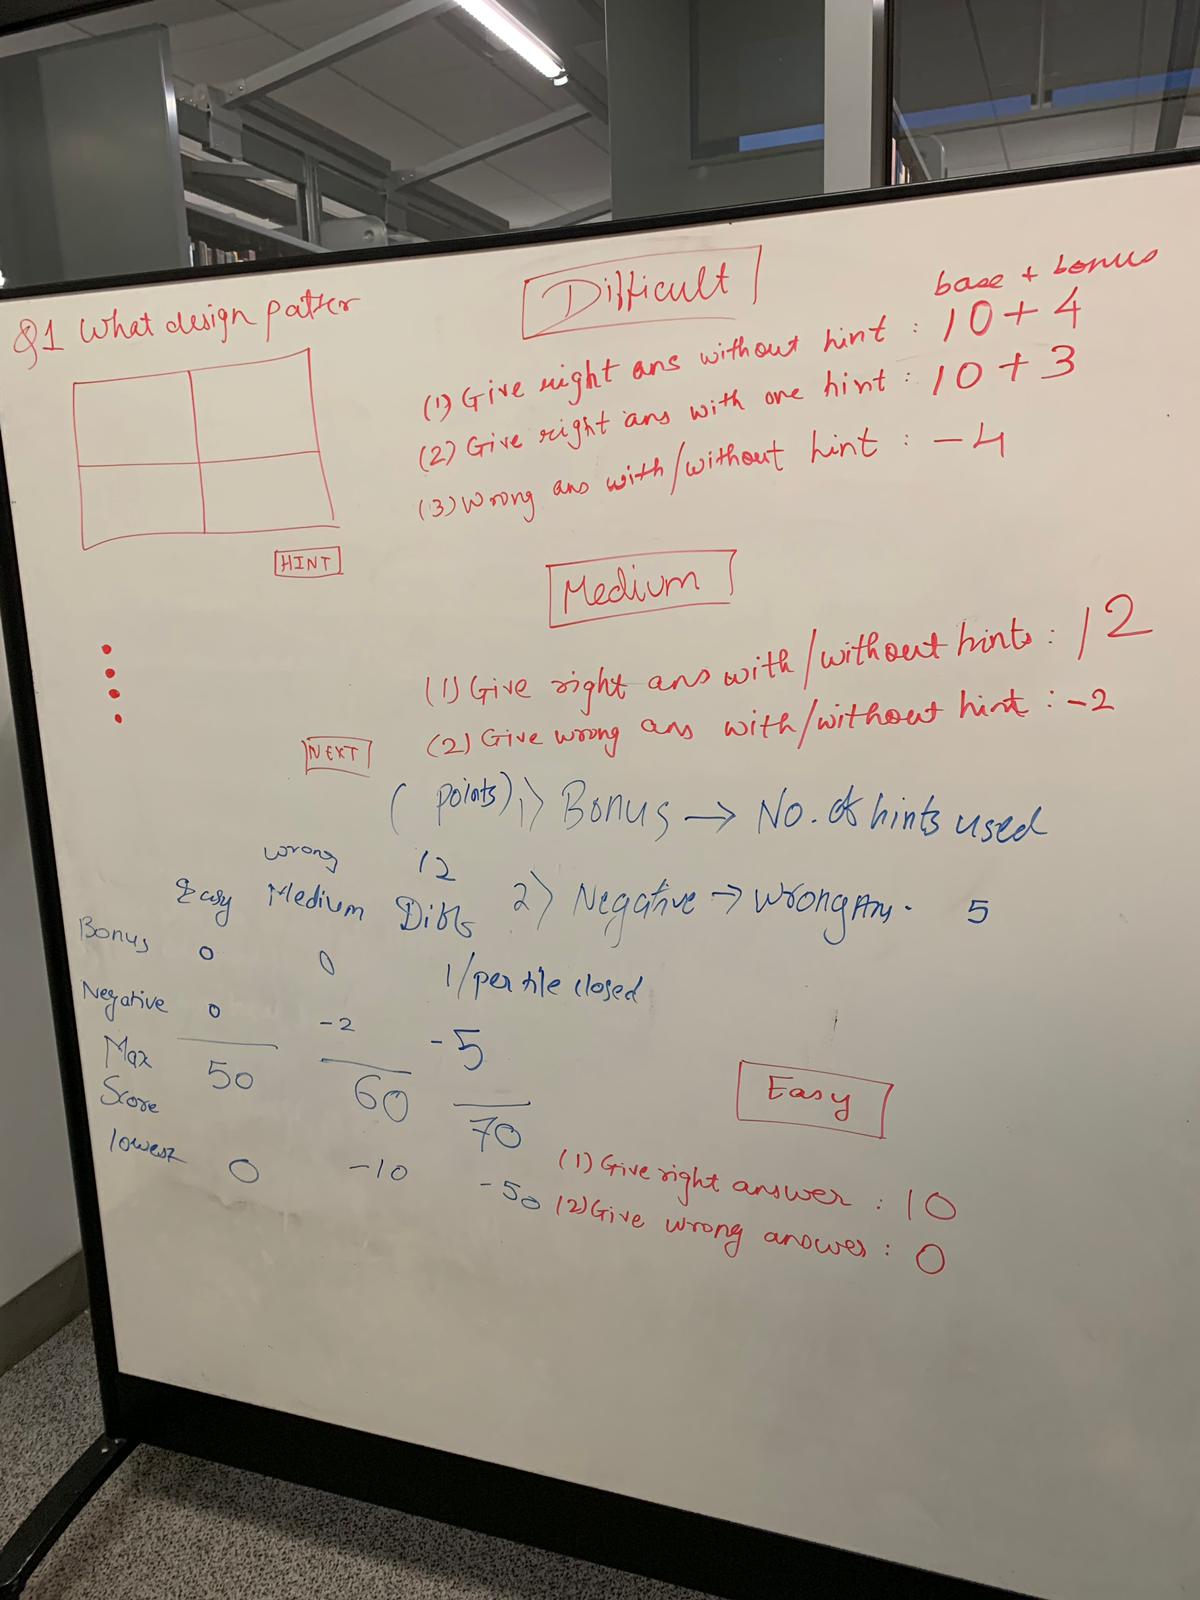 Q1 What design patter
HINT
NEXT
Difficult
base + bonus
(1) Give right ans without hint : 10 + 4
(2) Give right ans with one hint : 10 + 3
(3) Wrong ans with/without hint : -4
Medium
(1) Give right ans with/without hints : 12
(2) Give wrong ans with/without hint : -2
(points) 1) Bonus → No. of hints used
2) Negative → Wrong Ans. 5
wrong 12
Easy Medium
Bonus 0 0 1/per tile closed
Negative 0 -2 -5
Max Score 50 60 70
lowest 0 -10 -50
Easy
(1) Give right answer : 10
(2) Give wrong answer : 0